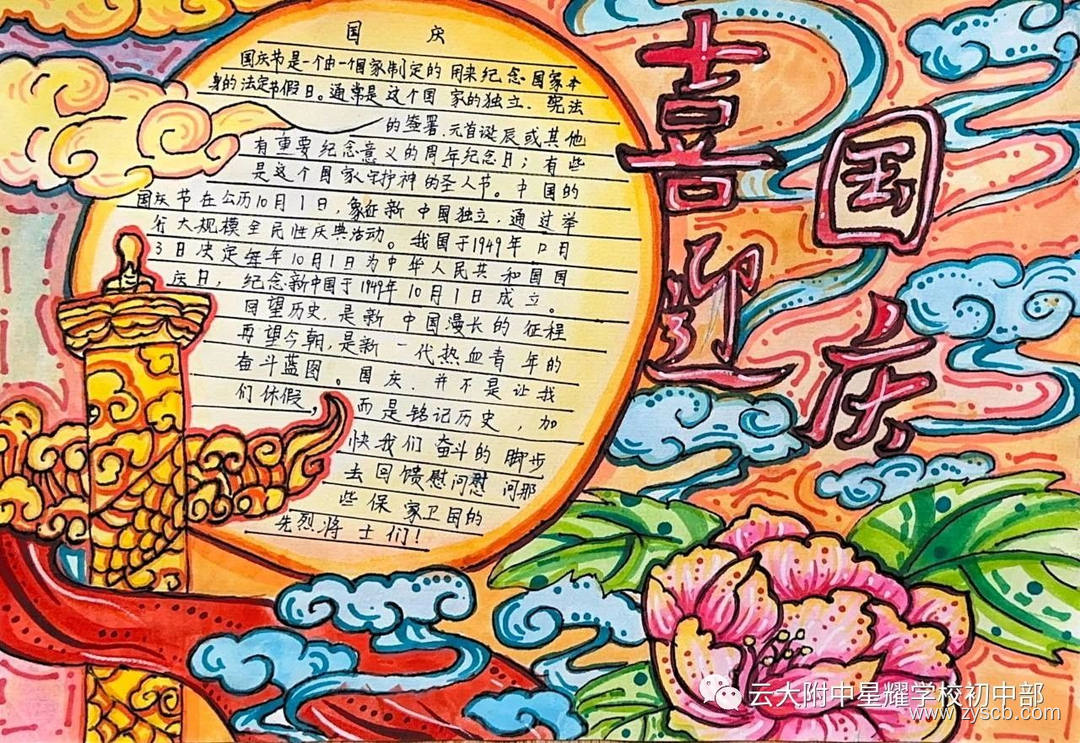 国庆
国庆节是一个由一个国家制定的用来纪念国家本
身的法定节假日。通常是这个国家的独立、宪法
的签署、元首诞辰或其他
有重要纪念意义的周年纪念日；有些
是这个国家守护神的圣人节。中国的
国庆节在公历10月1日，象征新中国独立，通过举
行大规模全民性庆典活动。我国于1949年12月
3日决定每年10月1日为中华人民共和国国
庆日，纪念新中国于1949年10月1日成立。
回望历史，是新中国漫长的征程
再望今朝，是新一代热血青年的
奋斗蓝图。国庆，并不是让我
们休假，而是铭记历史，加
快我们奋斗的脚步
去回馈慰问慰问那
些保家卫国的
先烈将士们！
喜迎
国庆
云大附中星耀学校初中部
www.zyscb.com